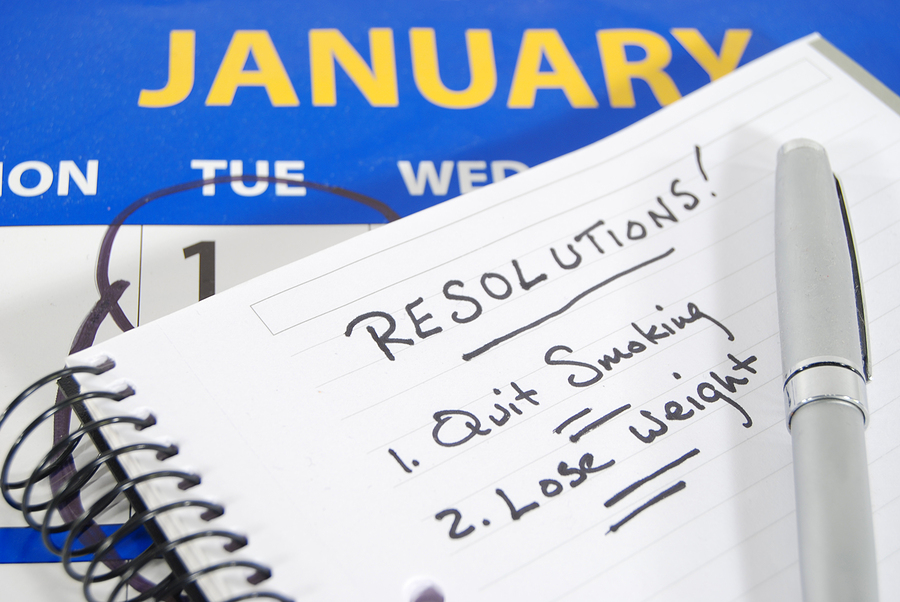 JANUARY
TUE
1
RESOLUTIONS!
1. Quit Smoking
2. Lose weight